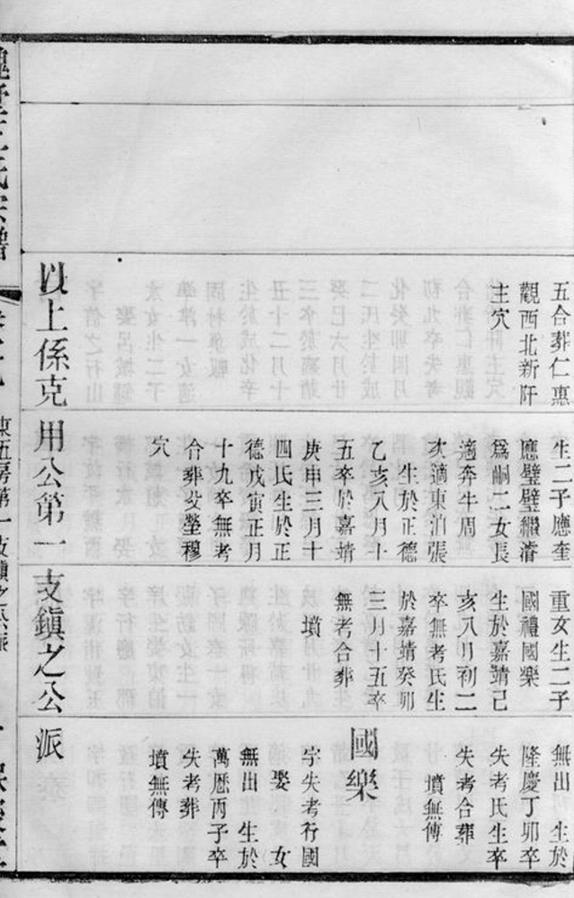 五合葬仁惠
觀西北新阡
主穴
生二子應奎
應璧璧繼濬
爲嗣二女長
適奔牛周
次適東泊張
生於正德
乙亥八月十
五卒於嘉靖
庚申三月十
四氏生於正
德戊寅正月
十九卒無考
合葬父塋穆
穴
重女生二子
國禮國樂
生於嘉靖己
亥八月初二
卒無考氏生
於嘉靖癸卯
三月十五卒
無考合葬
墳
無出 生於
隆慶丁卯卒
失考氏生卒
失考合葬
墳無傳
國樂
字失考行國
娶 女
無出 生於
萬厯丙子卒
失考葬
墳無傳
以上係克用公第一支鎮之公派
氏宗譜
東五房第一支鎮之公派